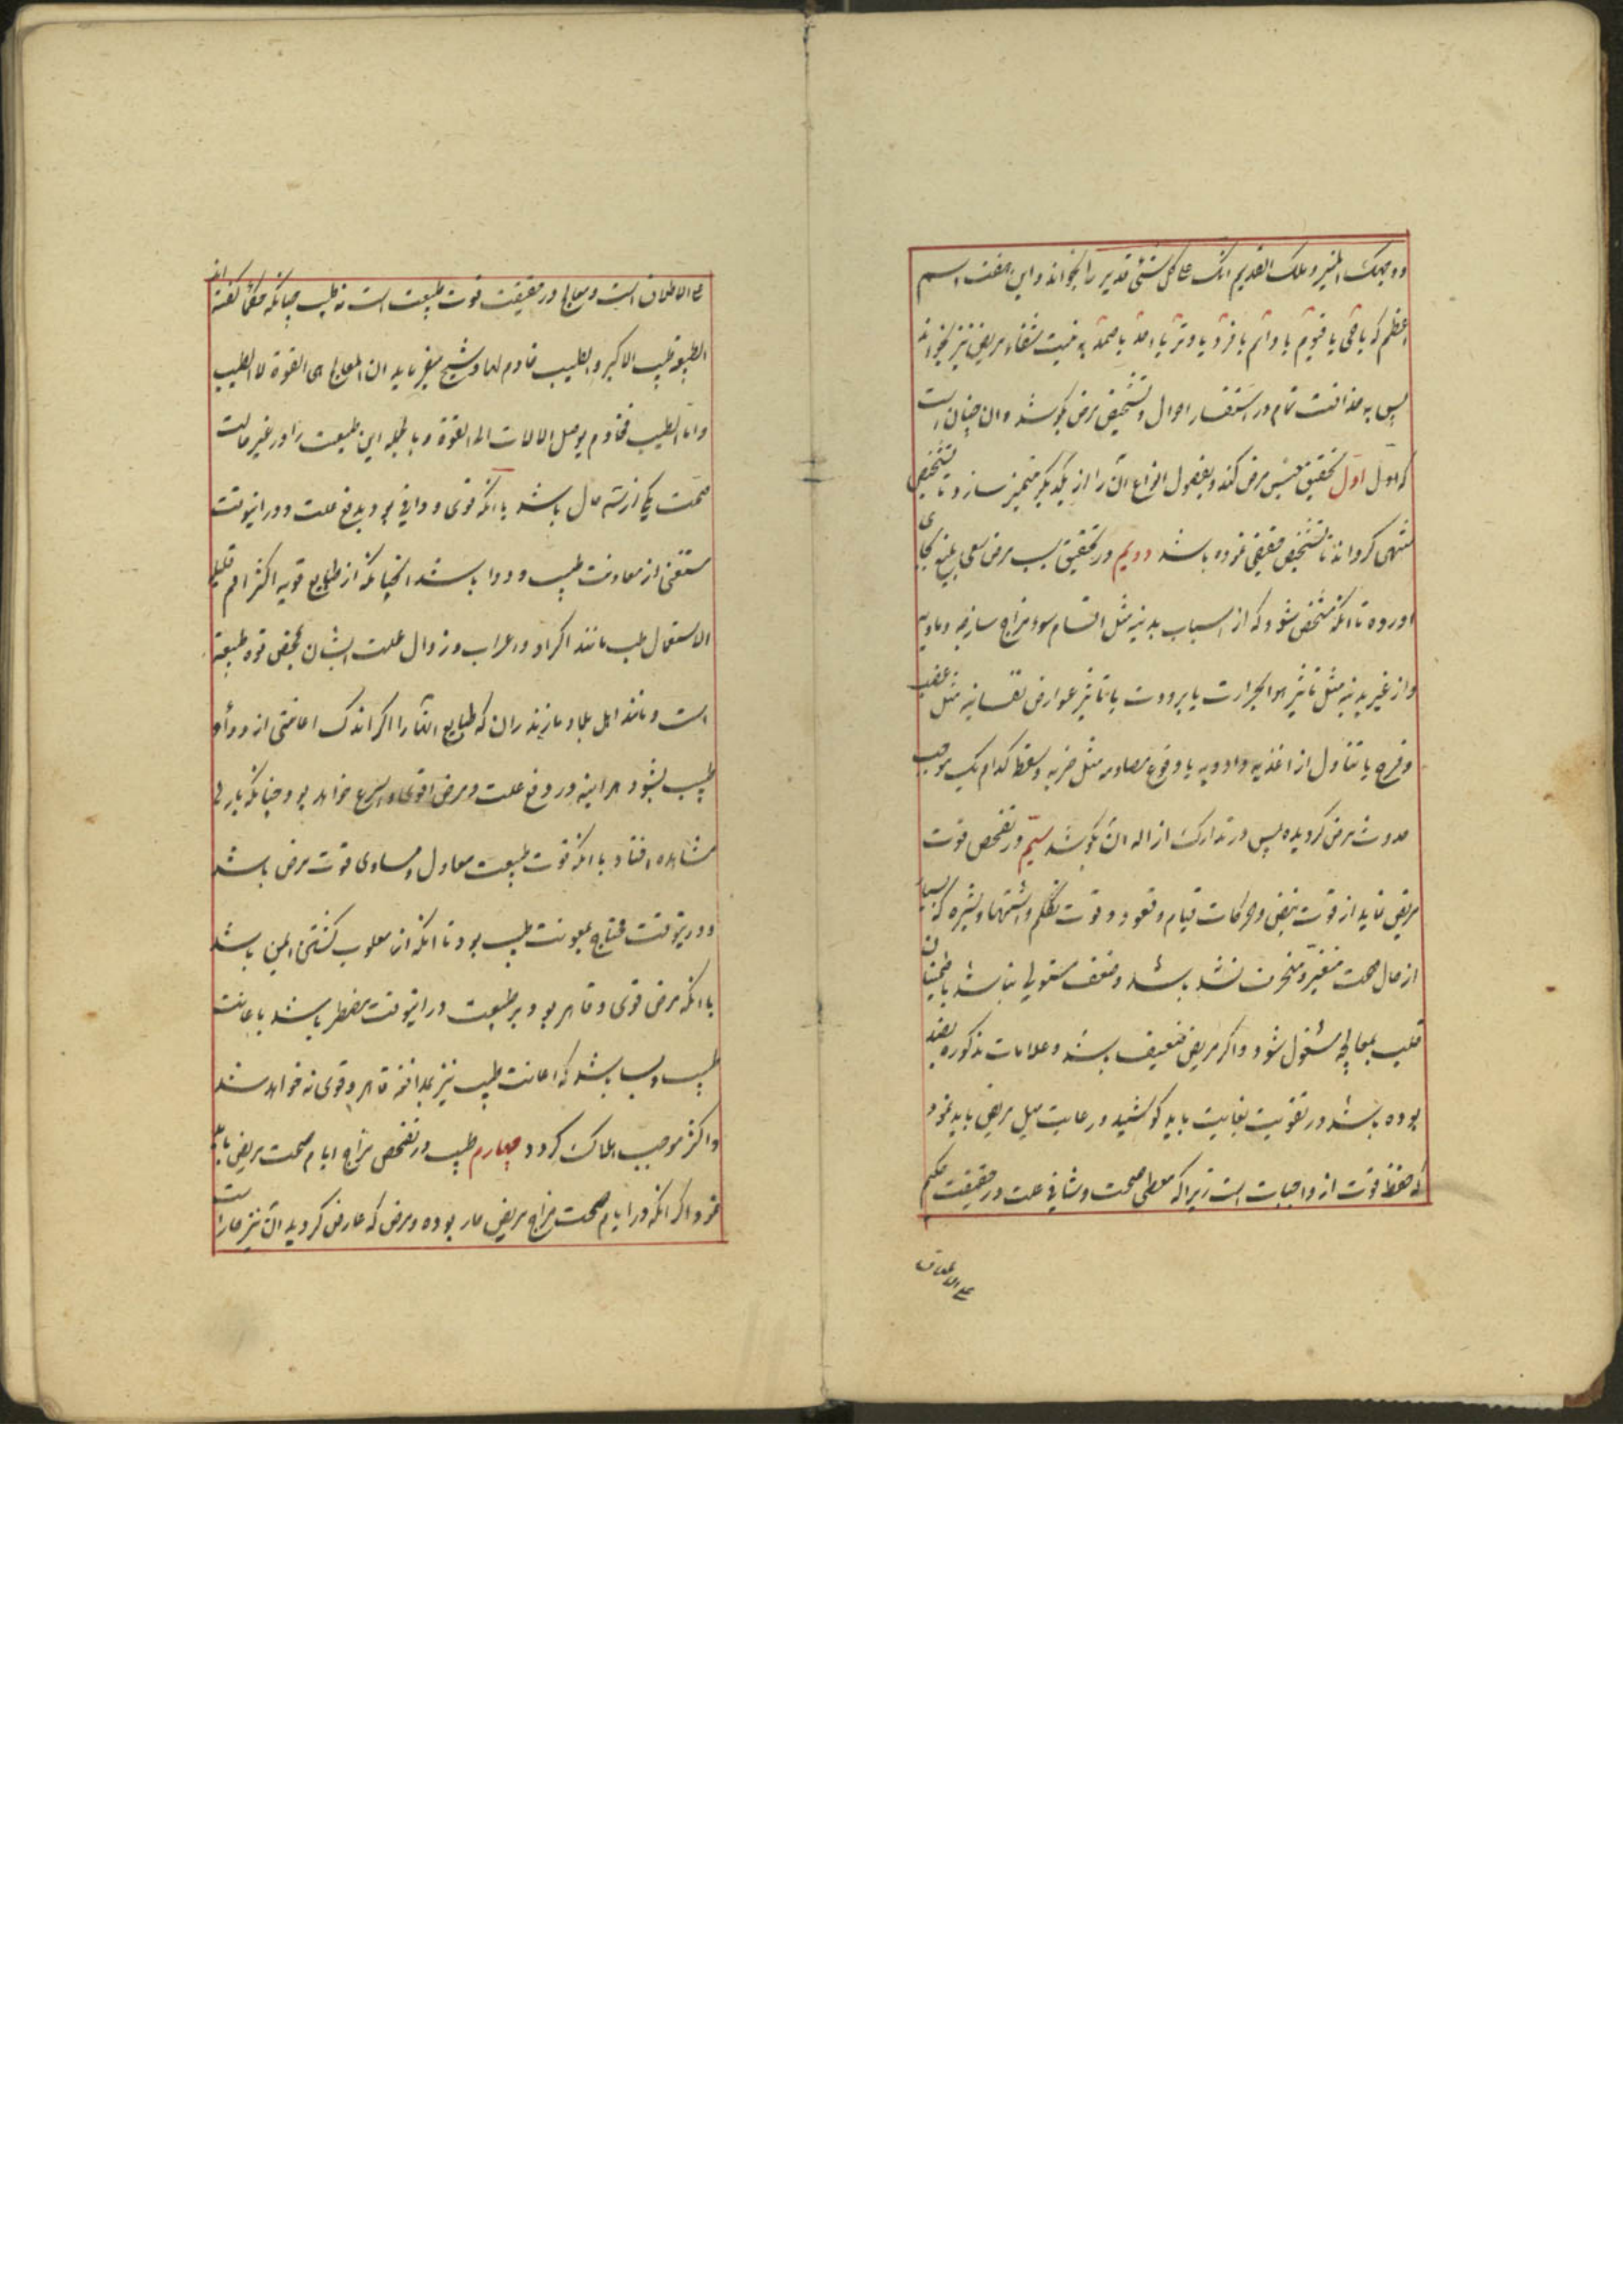 ووجهک المنیر وملک القدیم انک علی کل شئی قدیر را بخواند و این هفت اسم
اعظم که یا حی یا قیوم یا دائم یا فرد یا وتر یا احد یا صمد به نیت شفاء مریض نیز بخواند
پس به حذاقت تمام در استفسار احوال و تشخیص مرض بکوشد و ان چنان است
که اول اول تحقیق جنس مرض کند و بفصول انواع آن را از یکدیگر متمیز سازد تا بتشخیص
منتهی کرداند تا تشخیص حقیقی نموده باشد دویم در تحقیق سبب مرض سعی بلیغ بجای
اورده تا انکه مشخص شود که از اسباب بدنیه مثل اقسام سوء مزاج ساذجه و مادیه
و از غیر بدنیه مثل تاثیر هوا بحرارت یا برودت یا تاثیر عوارض نفسانیه مثل غضب
و فرح یا تناول از اغذیه و ادویه یا وقوع مصادمه مثل ضربه و سقطه کدام یک موجب
حدوث مرض کردیده پس در تدارک ازاله ان بکوشد سیم در تفحص قوت
مریض نماید از قوت نبض و حرکات قیام و قعود و قوت تکلم و اشتها و بشره که بسیار
از حال صحت متغیر و منحرف نشده باشد و ضعف مستولی نباشد باطمینان
قلب بمعالجه مشغول شود و اکر مریض ضعیف باشد و علامات مذکوره بضد
بوده باشد در تقویت بغایت باید کوشید و رعایت میل مریض باید نمود
که حفظ قوت از واجبات است زیرا که معطی صحت و شافی علت در حقیقت حکیم
علی الاطلاق
علی الاطلاق است و معالج در حقیقت قوت طبیعت است نه طبیب چنانکه حکما کفته اند
الطبیعة طبیب الاکبر والطبیب خادم لها و شیخ میفرماید ان المعالج هی القوة لا الطبیب
واما الطبیب فخادم یوصل الالات الی القوة و بالجمله این طبیعت را در غیر حالت
صحت یکی از سه حال باشد یا انکه قوی و وافی بود بدفع علت و در اینوقت
مستغنی از معاونت طبیب و دوا باشد انچنانکه از طبایع قویه اکثر امم قلیل
الاستعمال طب مانند اکراد و اعراب و زوال علت ایشان بمحض قوه طبیعة
است و مانند اهل بلاد مازندران که طبایع آنها را اکر اندک اعانتی از دوا و
طبیب بشود هر اینه در دفع علت و مرض اقوی و اسرع خواهد بود چنانکه بارها
مشاهده افتاد یا انکه قوت طبیعت معادل و مساوی قوت مرض باشد
و در ینوقت محتاج بمعونت طبیب بود تا انکه از مغلوب کشتن ایمن باشد
یا انکه مرض قوی و قاهر بود بر طبیعت در اینوقت مضطر باشد باعانت
طبیب و بسا باشد که اعانت طبیب نیز بمدافعه قاهر و قوی نه خواهد شد
و اکثر موجب هلاک کردد چهارم طبیب در تفحص مزاج ایام صحت مریض باید
نمود اکر انکه در ایام صحت مزاج مریض حار بوده و مرض که عارض کردیده آن نیز حار است